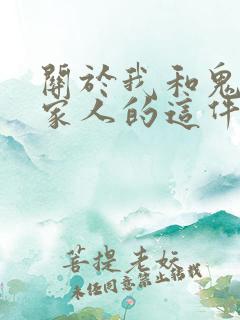 關於我和鬼
家人的這件
菩提老妖
未任同意禁止轉載